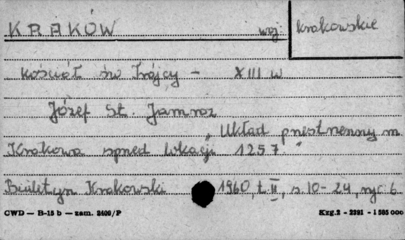 KRAKÓW woj. krakowskie
kościół św Trójcy - XIII w
Józef St. Jamroz
"Układ przestrzenny m.
Krakowa sprzed lokacji 1257."
Biuletyn Krakowski 1960, t. II, s. 10-24, ryc. 6.
CWD — B-15 b — zam. 2400/P Kzg. 2 - 2291 - 1 585 000